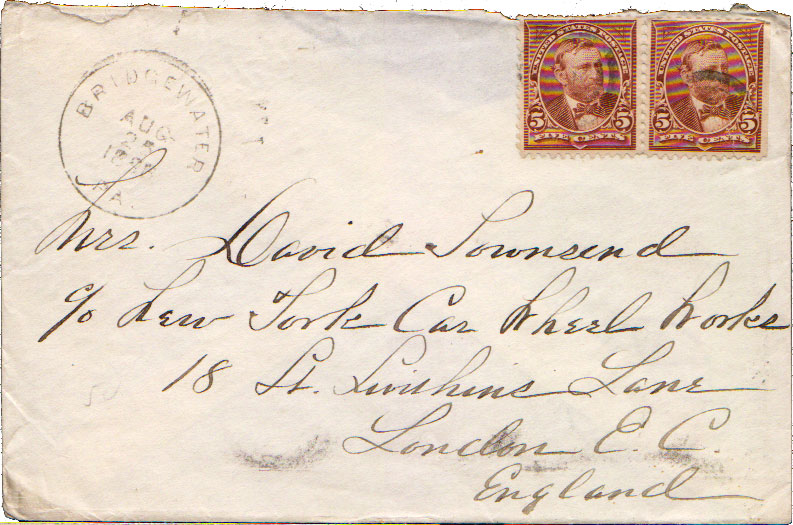 BRIDGEWATER
AUG
25
PA.
UNITED STATES POSTAGE
5 5
FIVE CENTS
UNITED STATES POSTAGE
5 5
FIVE CENTS
Mrs. David Townsend
c/o New York Car Wheel Works
18 St. Swithins Lane
London E. C.
England